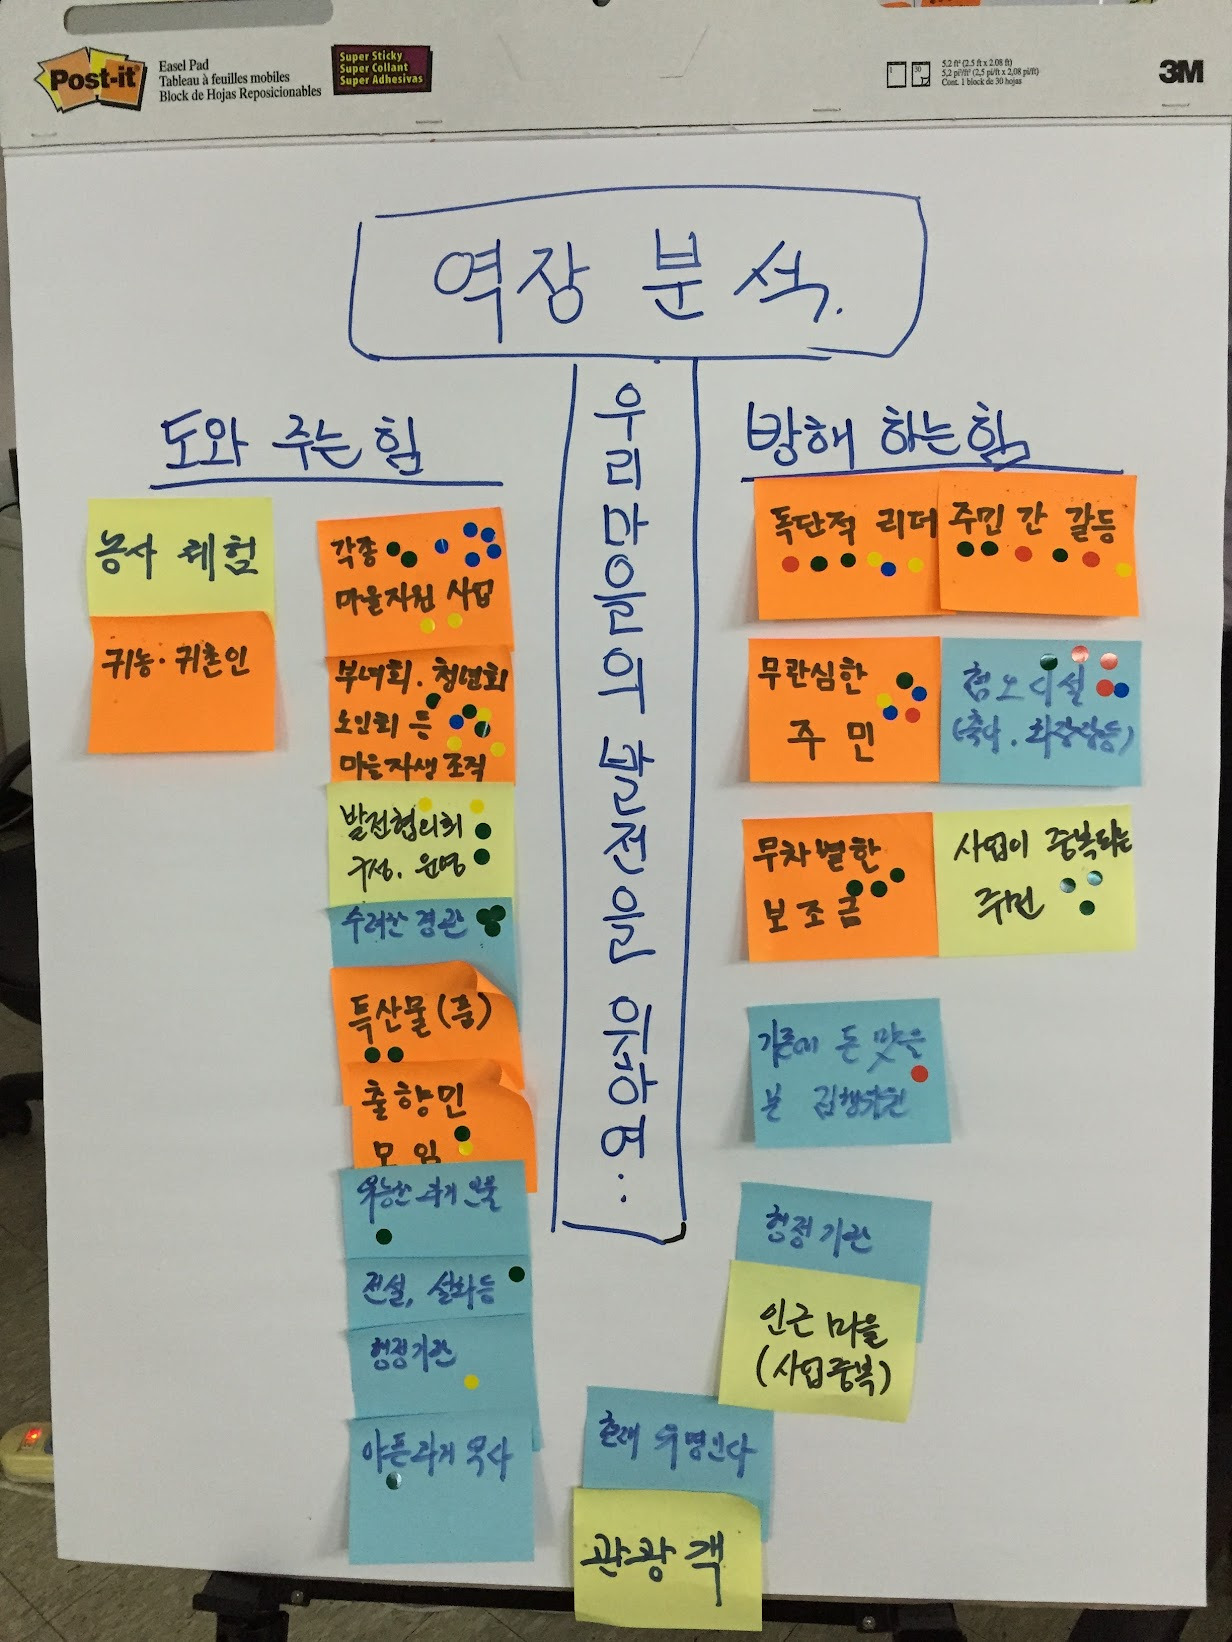 Post-it
Easel Pad
Tableau à feuilles mobiles
Block de Hojas Reposicionables
Super Sticky
Super Collant
Super Adhesivas
5.2 ft² (2.5 ft x 2.08 ft)
5,2 pi² (2,5 pi x 2,08 pi)
Cont. 1 block de 30 hojas
3M
역장 분석.
우리마을의 발전을 위하여..
도와 주는 힘
농사 체험
귀농·귀촌인
각종
마을지원 사업
부녀회. 청년회
노인회 등
마을자생 조직
발전협의회
구성. 운영
수려한 경관
특산물(품)
출향민
모임
유능한 과거 인물
전설, 설화등
행정기관
아픈과거 역사
방해 하는힘
독단적 리더
주민 간 갈등
무관심한
주민
혐오시설
(축사. 화장장등)
무차별한
보조금
사업이 중복되는
주민
기존에 돈 맛을
본
행정기관
인근 마을
(사업중복)
관광객